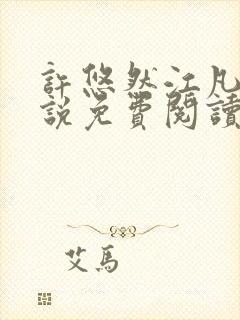 許悠然江凡
説免費閱讀
艾馬